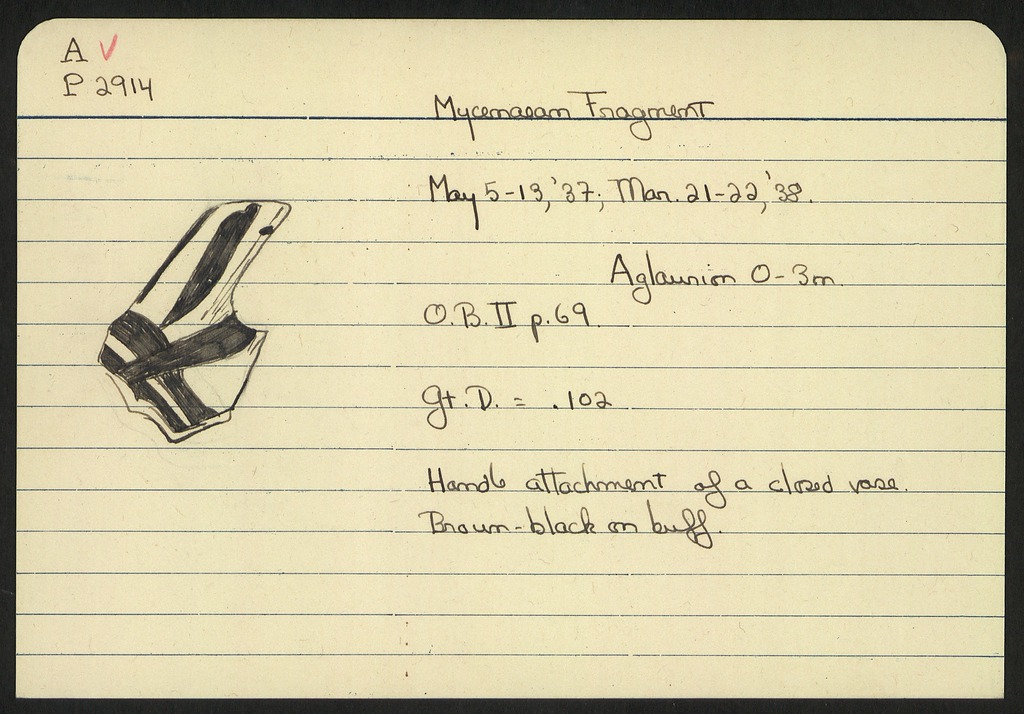 A ✓
P 2914
Mycenaean Fragment
May 5-13,'37; Mar. 21-22,'38.
Aglaurion 0-3m.
O.B. II p.69.
Gt. D. = .102
Handle attachment of a closed vase.
Brown-black on buff.